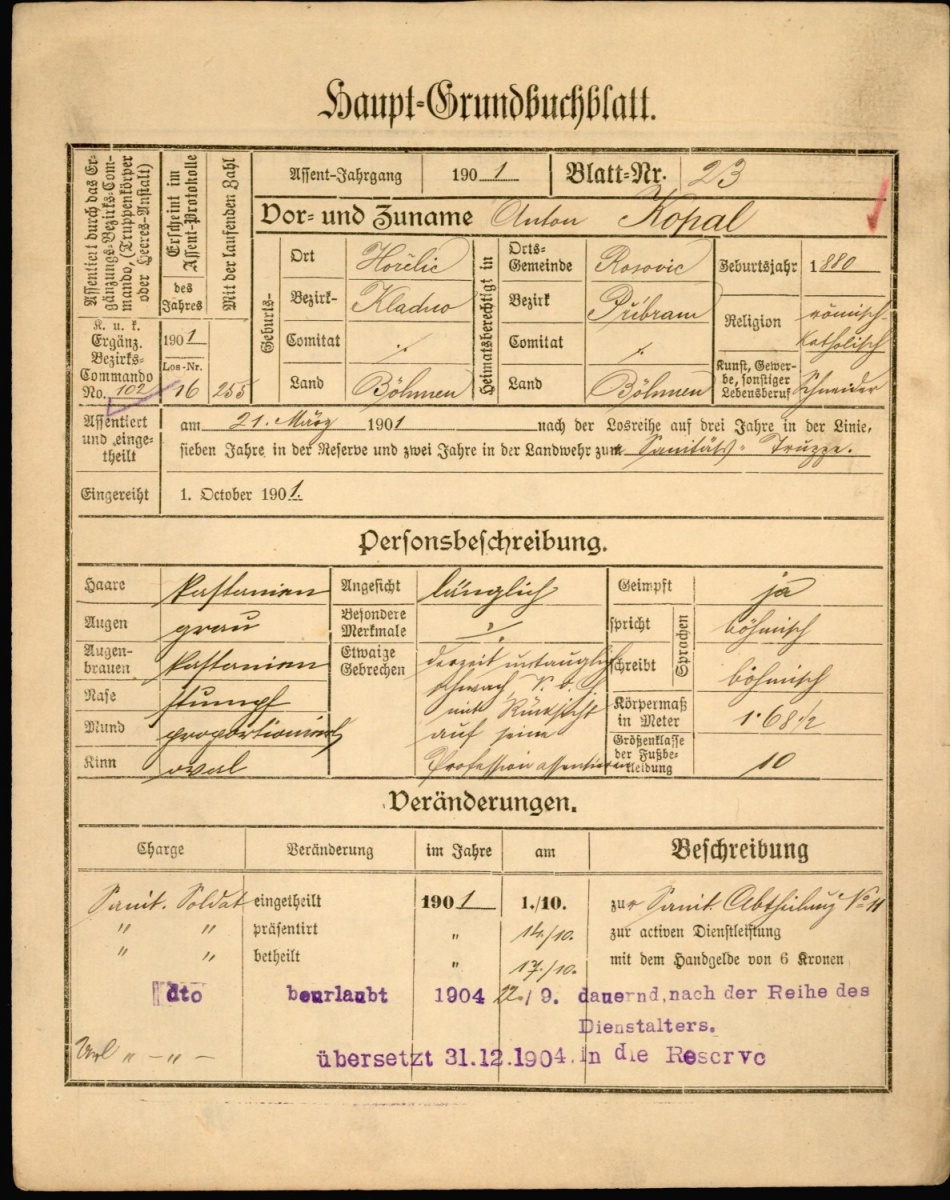 Haupt-Grundbuchblatt.
Assentiert durch das Er-
gänzungs-Bezirks-Com-
mando, (Truppenkörper
oder Heeres-Anstalt)
Erscheint im
Assent-Protokolle
des
Jahres
Mit der laufenden Zahl
K. u. k.
Ergänz.
Bezirks-
Commando
No. 102
1901
Los-Nr.
16
255
Assent-Jahrgang 1901 Blatt-Nr. 23
Vor- und Zuname Anton Kopal
Geburts-
Ort Hořelic
Bezirk- Kladno
Comitat ./.
Land Böhmen
Heimatsberechtigt in
Orts-
Gemeinde Rosovic
Bezirk Přibram
Comitat ./.
Land Böhmen
Geburtsjahr 1880
Religion römisch-
katholisch
Kunst, Gewer-
be, sonstiger
Lebensberuf Schneider
Assentiert
und einge-
theilt
am 21. März 1901 nach der Losreihe auf drei Jahre in der Linie,
sieben Jahre in der Reserve und zwei Jahre in der Landwehr zur Sanitäts-Truppe.
Eingereiht 1. October 1901.
Personsbeschreibung.
Haare kastanien
Augen grau
Augen-
brauen kastanien
Nase stumpf
Mund proportioniert
Kinn oval
Angesicht länglich
Besondere
Merkmale ./.
Etwaige
Gebrechen derzeit untauglich
schwach,
mit Rücksicht
auf seine
Profession assentieren
Geimpft ja
Sprachen
spricht böhmisch
schreibt böhmisch
Körpermaß
in Meter 1·68½
Größenklasse
der Fußbe-
kleidung 10
Veränderungen.
Charge Veränderung im Jahre am Beschreibung
Sanit. Soldat eingetheilt 1901 1./10. zur Sanit. Abtheilung No 11
" " präsentirt " 14./10. zur activen Dienstleistung
" " betheilt " 17./10. mit dem Handgelde von 6 Kronen
dto beurlaubt 1904 22./9. dauernd,nach der Reihe des
Dienstalters.
" – " – übersetzt 31.12.1904. in die Reserve